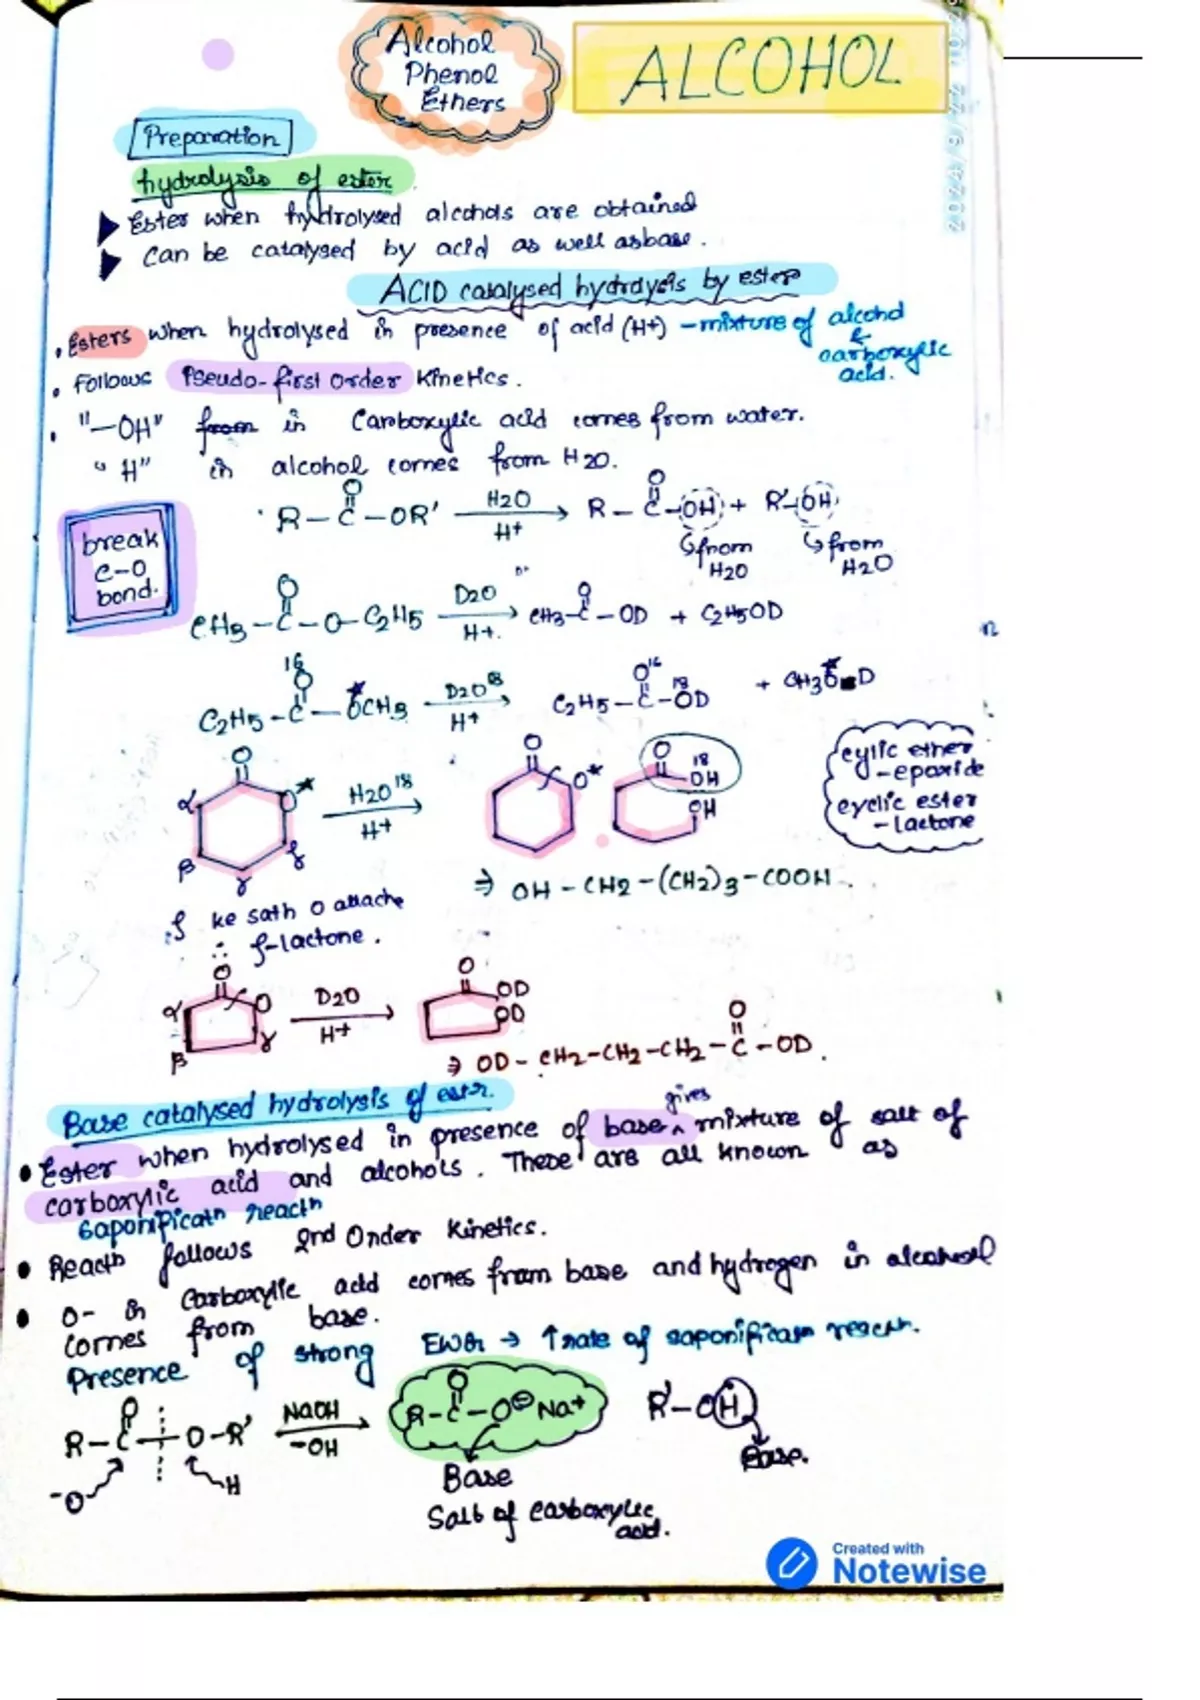 Alcohol
Phenol
Ethers
ALCOHOL
Preparation
hydrolysis of ester
Ester when hydrolysed alcohols are obtained
Can be catalysed by acid as well as base.
ACID catalysed hydrolysis by ester
Esters when hydrolysed in presence of acid (H+) - mixture of alcohol
&
carboxylic
acid.
Follows Pseudo-first order kinetics.
"-OH" from in Carboxylic acid comes from water.
"H" in alcohol comes from H2O.
break
C-O
bond.
R-C-OR' H2O R-C-OH + R'-OH
O
H+
O
from
H2O
from
H2O
CH3-C-O-C2H5 D2O CH3-C-OD + C2H5OD
O
H+
O
16
O
C2H5-C-OCH3 D2O18 C2H5-C-OD + CH3O D
H+
O16
18
cylic ether
-epoxide
cyclic ester
-lactone
O
α
O*
β
γ
δ
H2O18
H+
O
O*
O
18
OH
OH
⇒ OH-CH2-(CH2)3-COOH
:δ ke sath O attache
∴ δ-lactone.
O
α
O
β
γ
D2O
H+
O
OD
OD
O
⇒ OD-CH2-CH2-CH2-C-OD.
Base catalysed hydrolysis of ester.
Ester when hydrolysed in presence of base gives mixture of salt of
carboxylic acid and alcohols. These are all known as
saponificatn reactn
Reactn follows 2nd Order kinetics.
O- in Carboxylic acid comes from base and hydrogen in alcohol
comes from base.
Presence of strong EWG → ↑rate of saponificatn reactn.
O
R-C-O-R' NaOH R-C-O⊖Na+ R'-OH
-OH
O
-O
H
Base
Base.
Salt of carboxylic
acid.
2024/9/22 10:2
Created with
Notewise